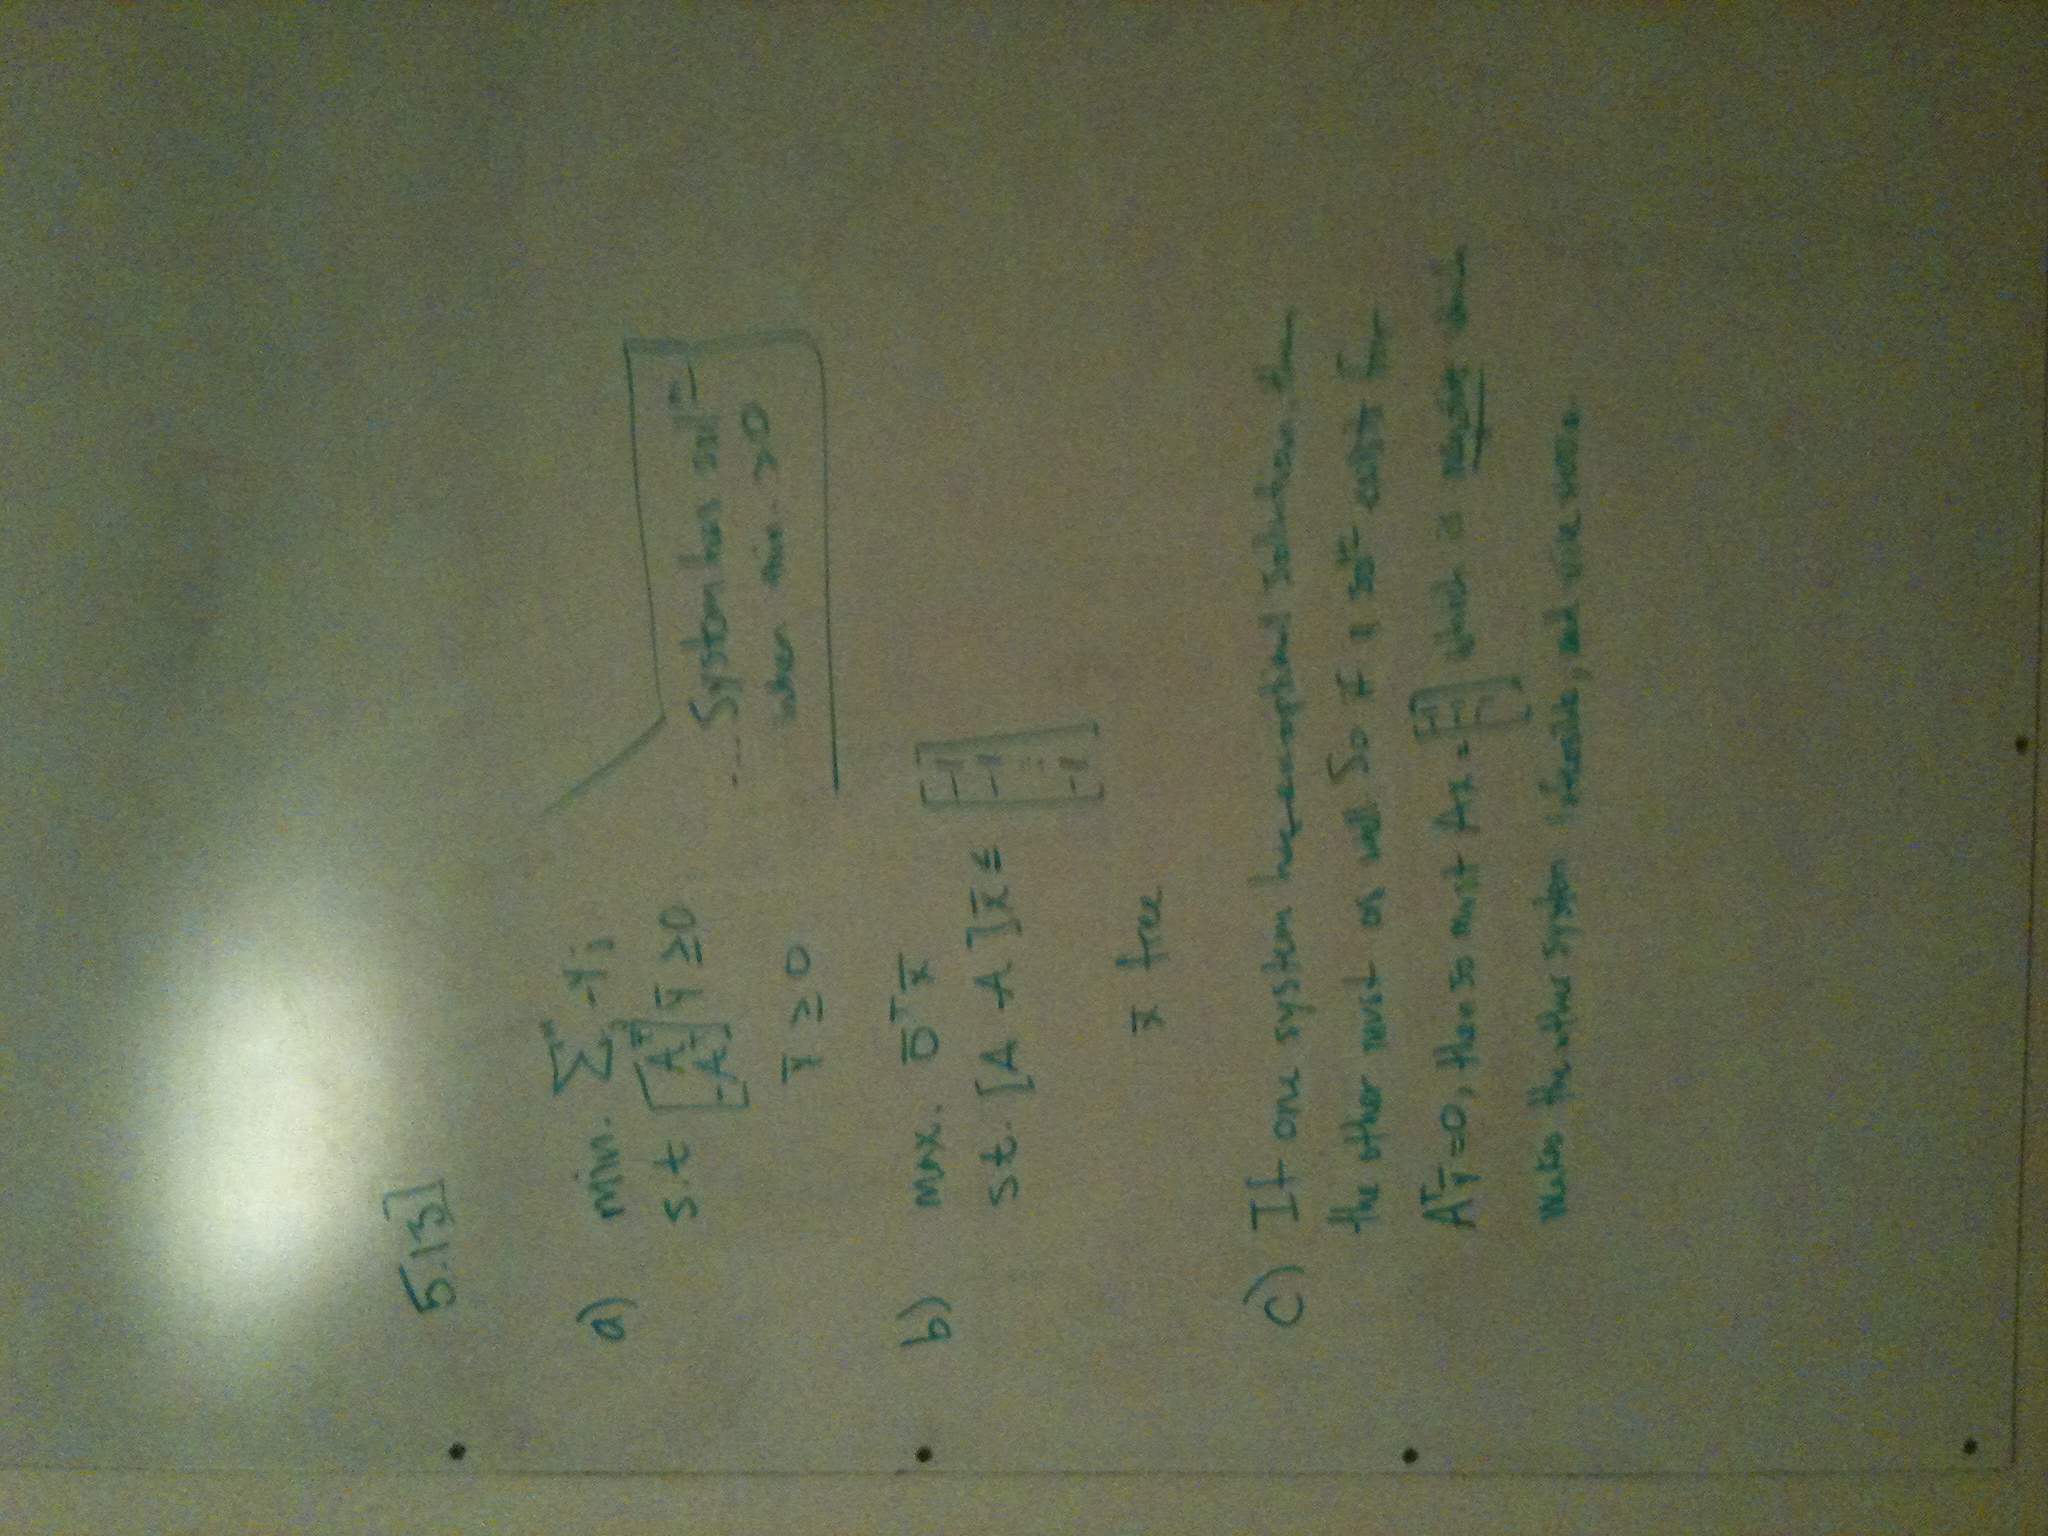 5.13]
a) min. Σ^m_j -Y_j
s.t [A^T -A^T] Ȳ ≥ 0
Ȳ ≥ 0
... System has sol^n
when min. > 0
b) max. 0̄^T x̄
s.t. [A -A] x̄ ≤ [-1 -1 ⋮ -1]
x̄ free
c) If one system has an optimal solution, then
the other must as well So if a sol^n exists for
A^T Ȳ = 0, then so must Ax = [-1 -1 -1] which is negative which
makes the other system infeasible, and vice versa.